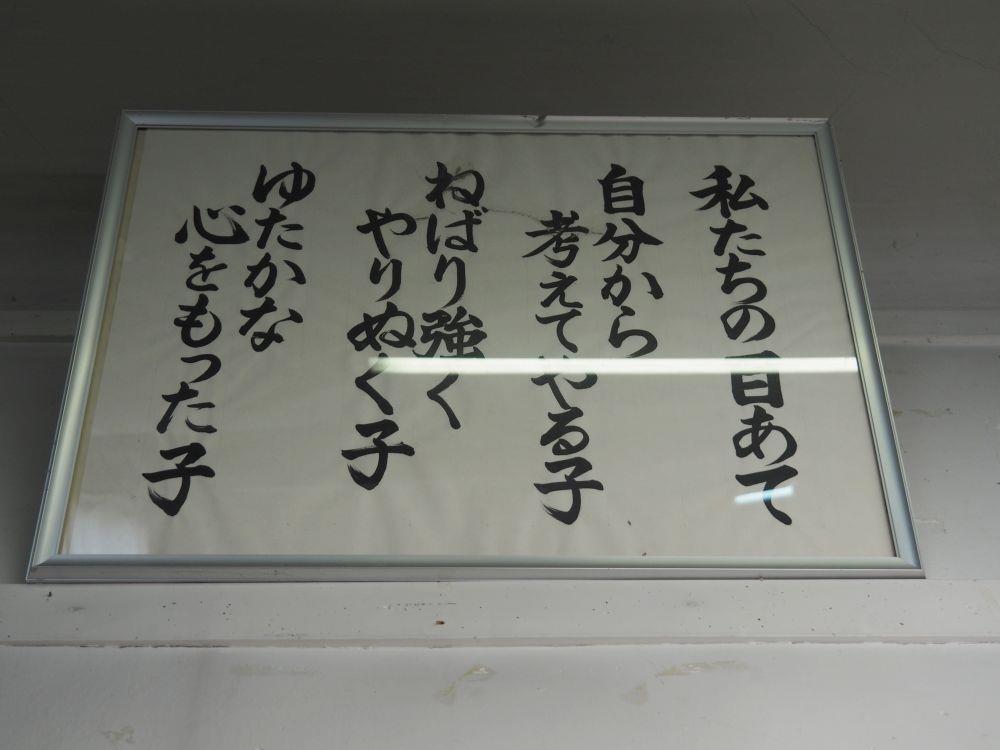 私たちの目あて
自分から
考えてやる子
ねばり強く
やりぬく子
ゆたかな
心をもった子